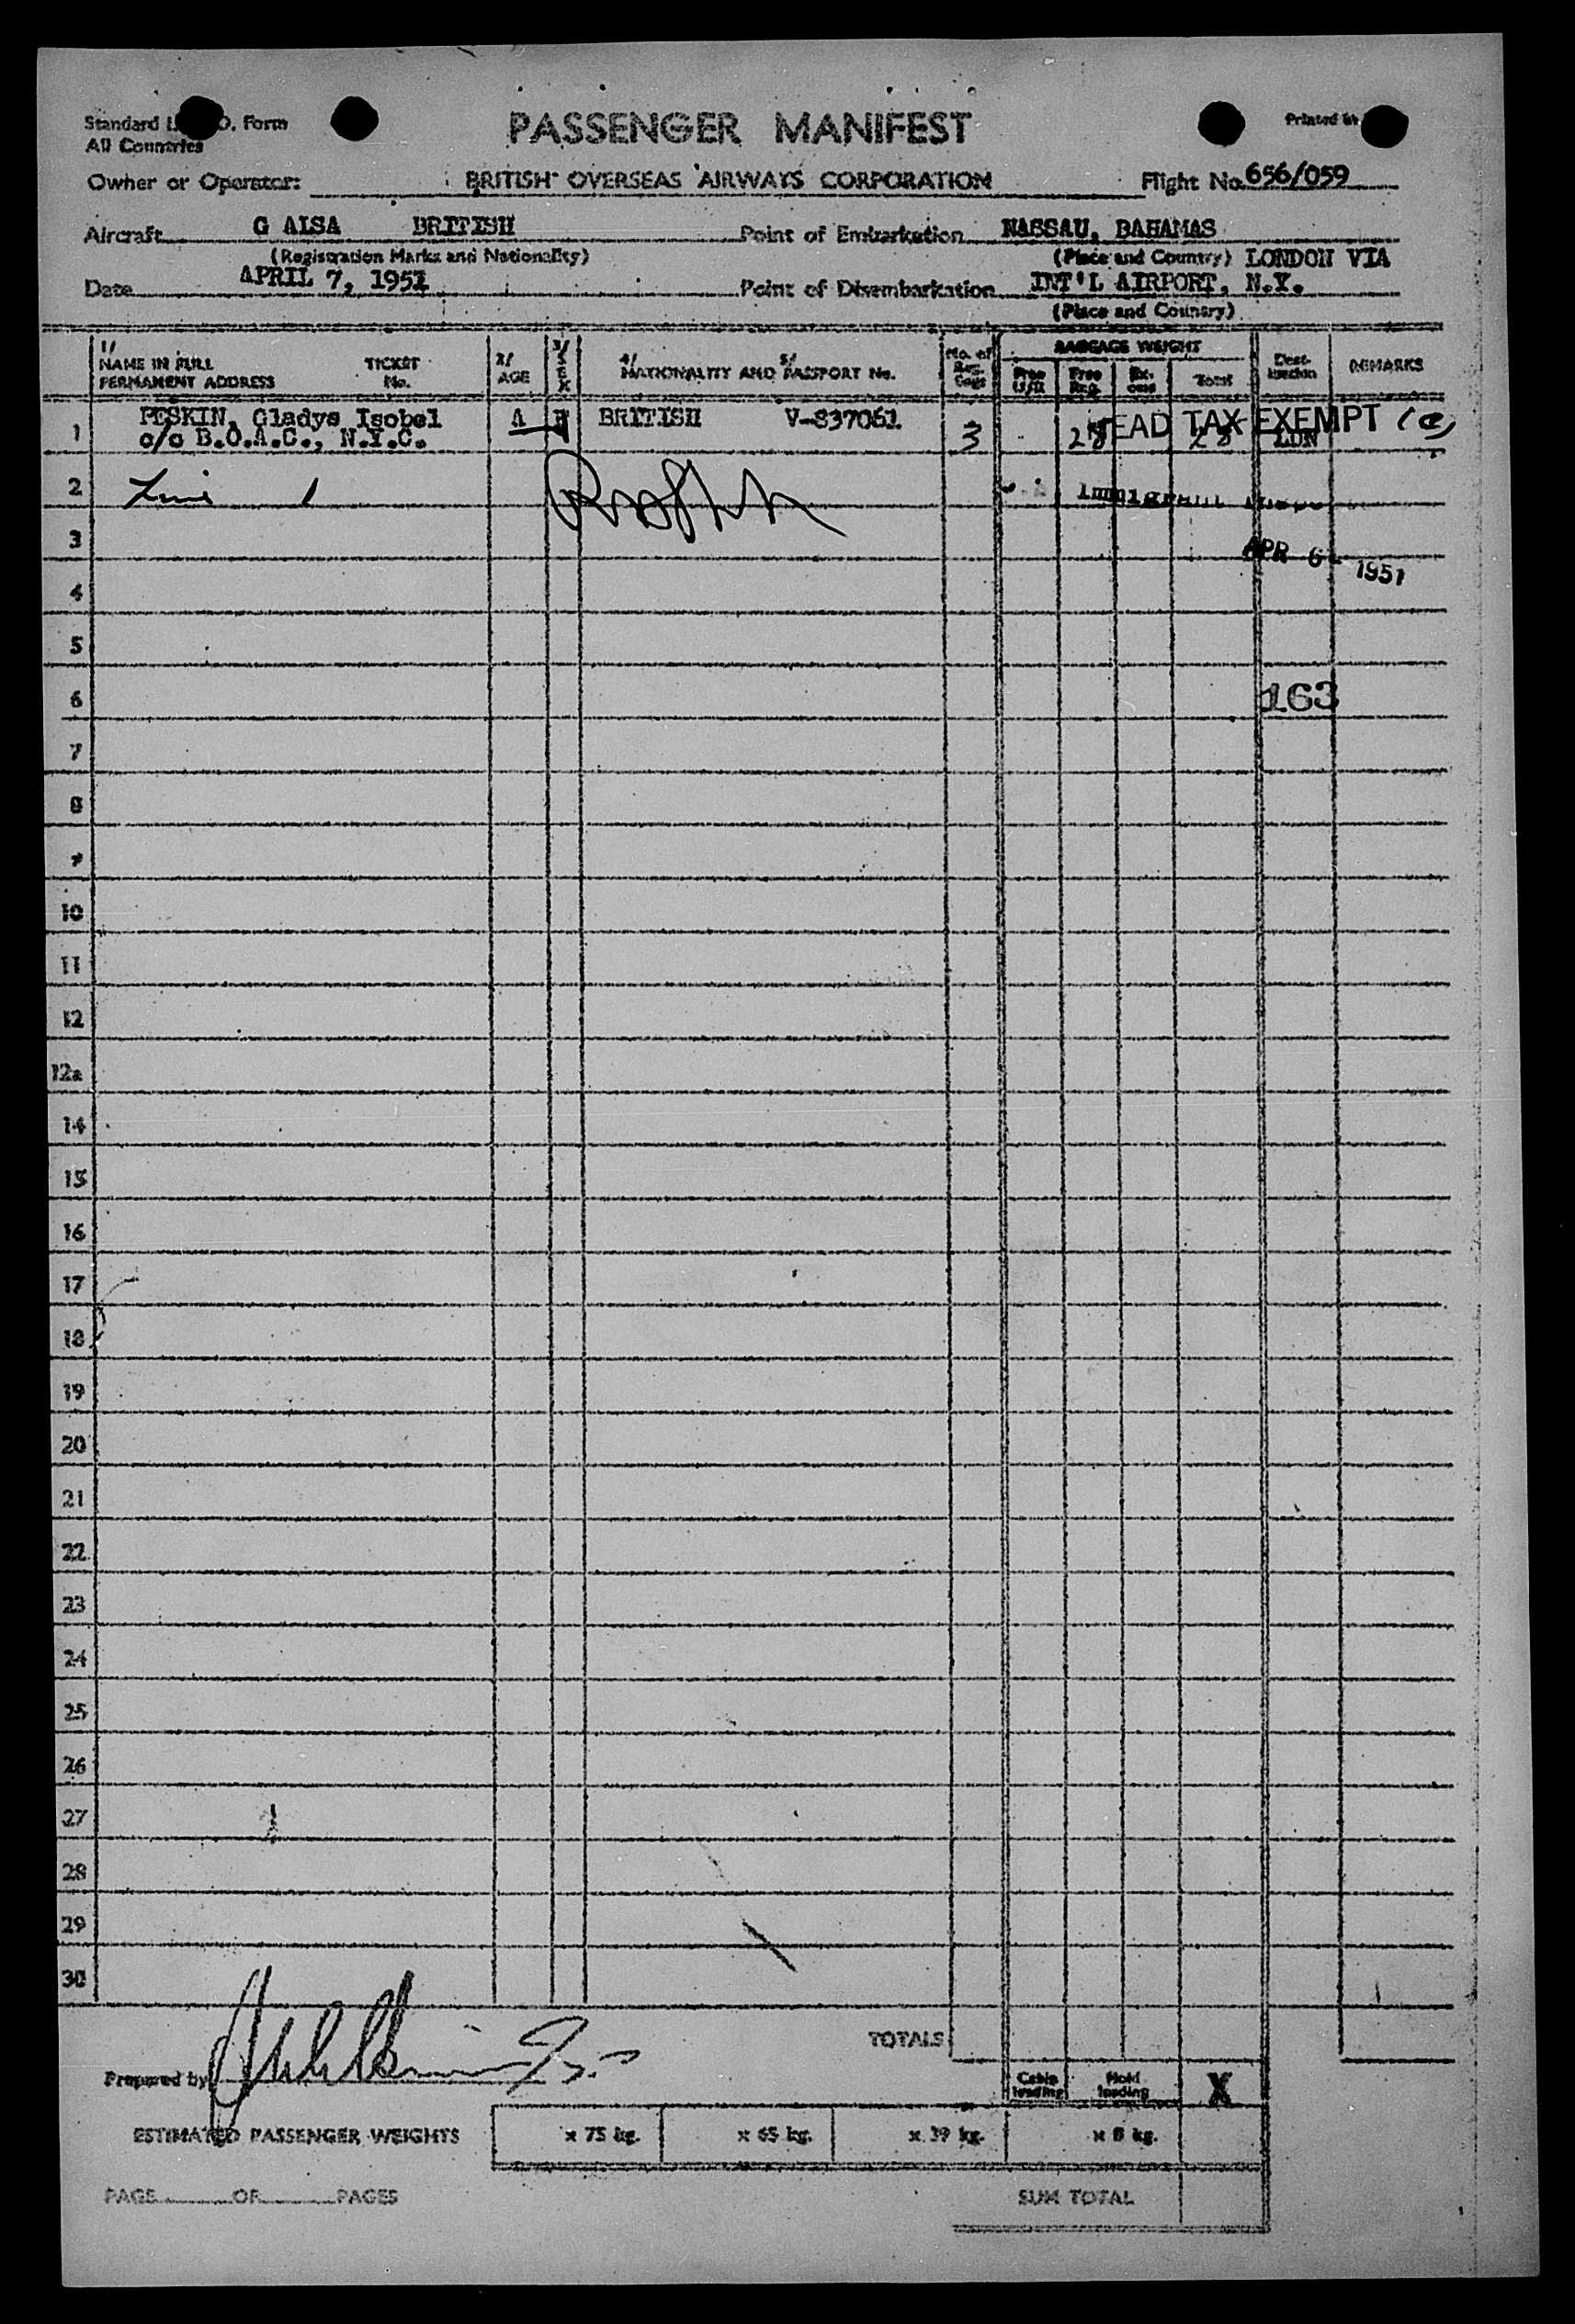 Standard I. O. Form
All Countries
PASSENGER MANIFEST
Printed in
Owner or Operator: BRITISH OVERSEAS AIRWAYS CORPORATION Flight No. 656/059
Aircraft G ALSA BRITISH Point of Embarkation NASSAU, BAHAMAS
(Registration Marks and Nationality) (Place and Country) LONDON VIA
Date APRIL 7, 1951 Point of Disembarkation INT'L AIRPORT, N.Y.
(Place and Country)
1/ NAME IN FULL PERMANENT ADDRESS TICKET No. 2/ AGE 3/ SEX 4/ NATIONALITY AND 5/ PASSPORT No. No. of Reg. Bags BAGGAGE WEIGHT Free Reg. Ex-cess Total Dest-ination REMARKS
1 PESKIN, Gladys Isobel A F BRITISH V-837061 3 28 28 LDN
c/o B.O.A.C., N.Y.C.
HEAD TAX EXEMPT (e)
2
3
APR 6 - 1951
4
5
6 163
7
8
9
10
11
12
12a
14
15
16
17
18
19
20
21
22
23
24
25
26
27
28
29
30
TOTALS
Prepared by
Cabin loading Hold loading X
ESTIMATED PASSENGER WEIGHTS x 75 kg. x 65 kg. x 39 kg. x 8 kg.
PAGE OF PAGES SUM TOTAL